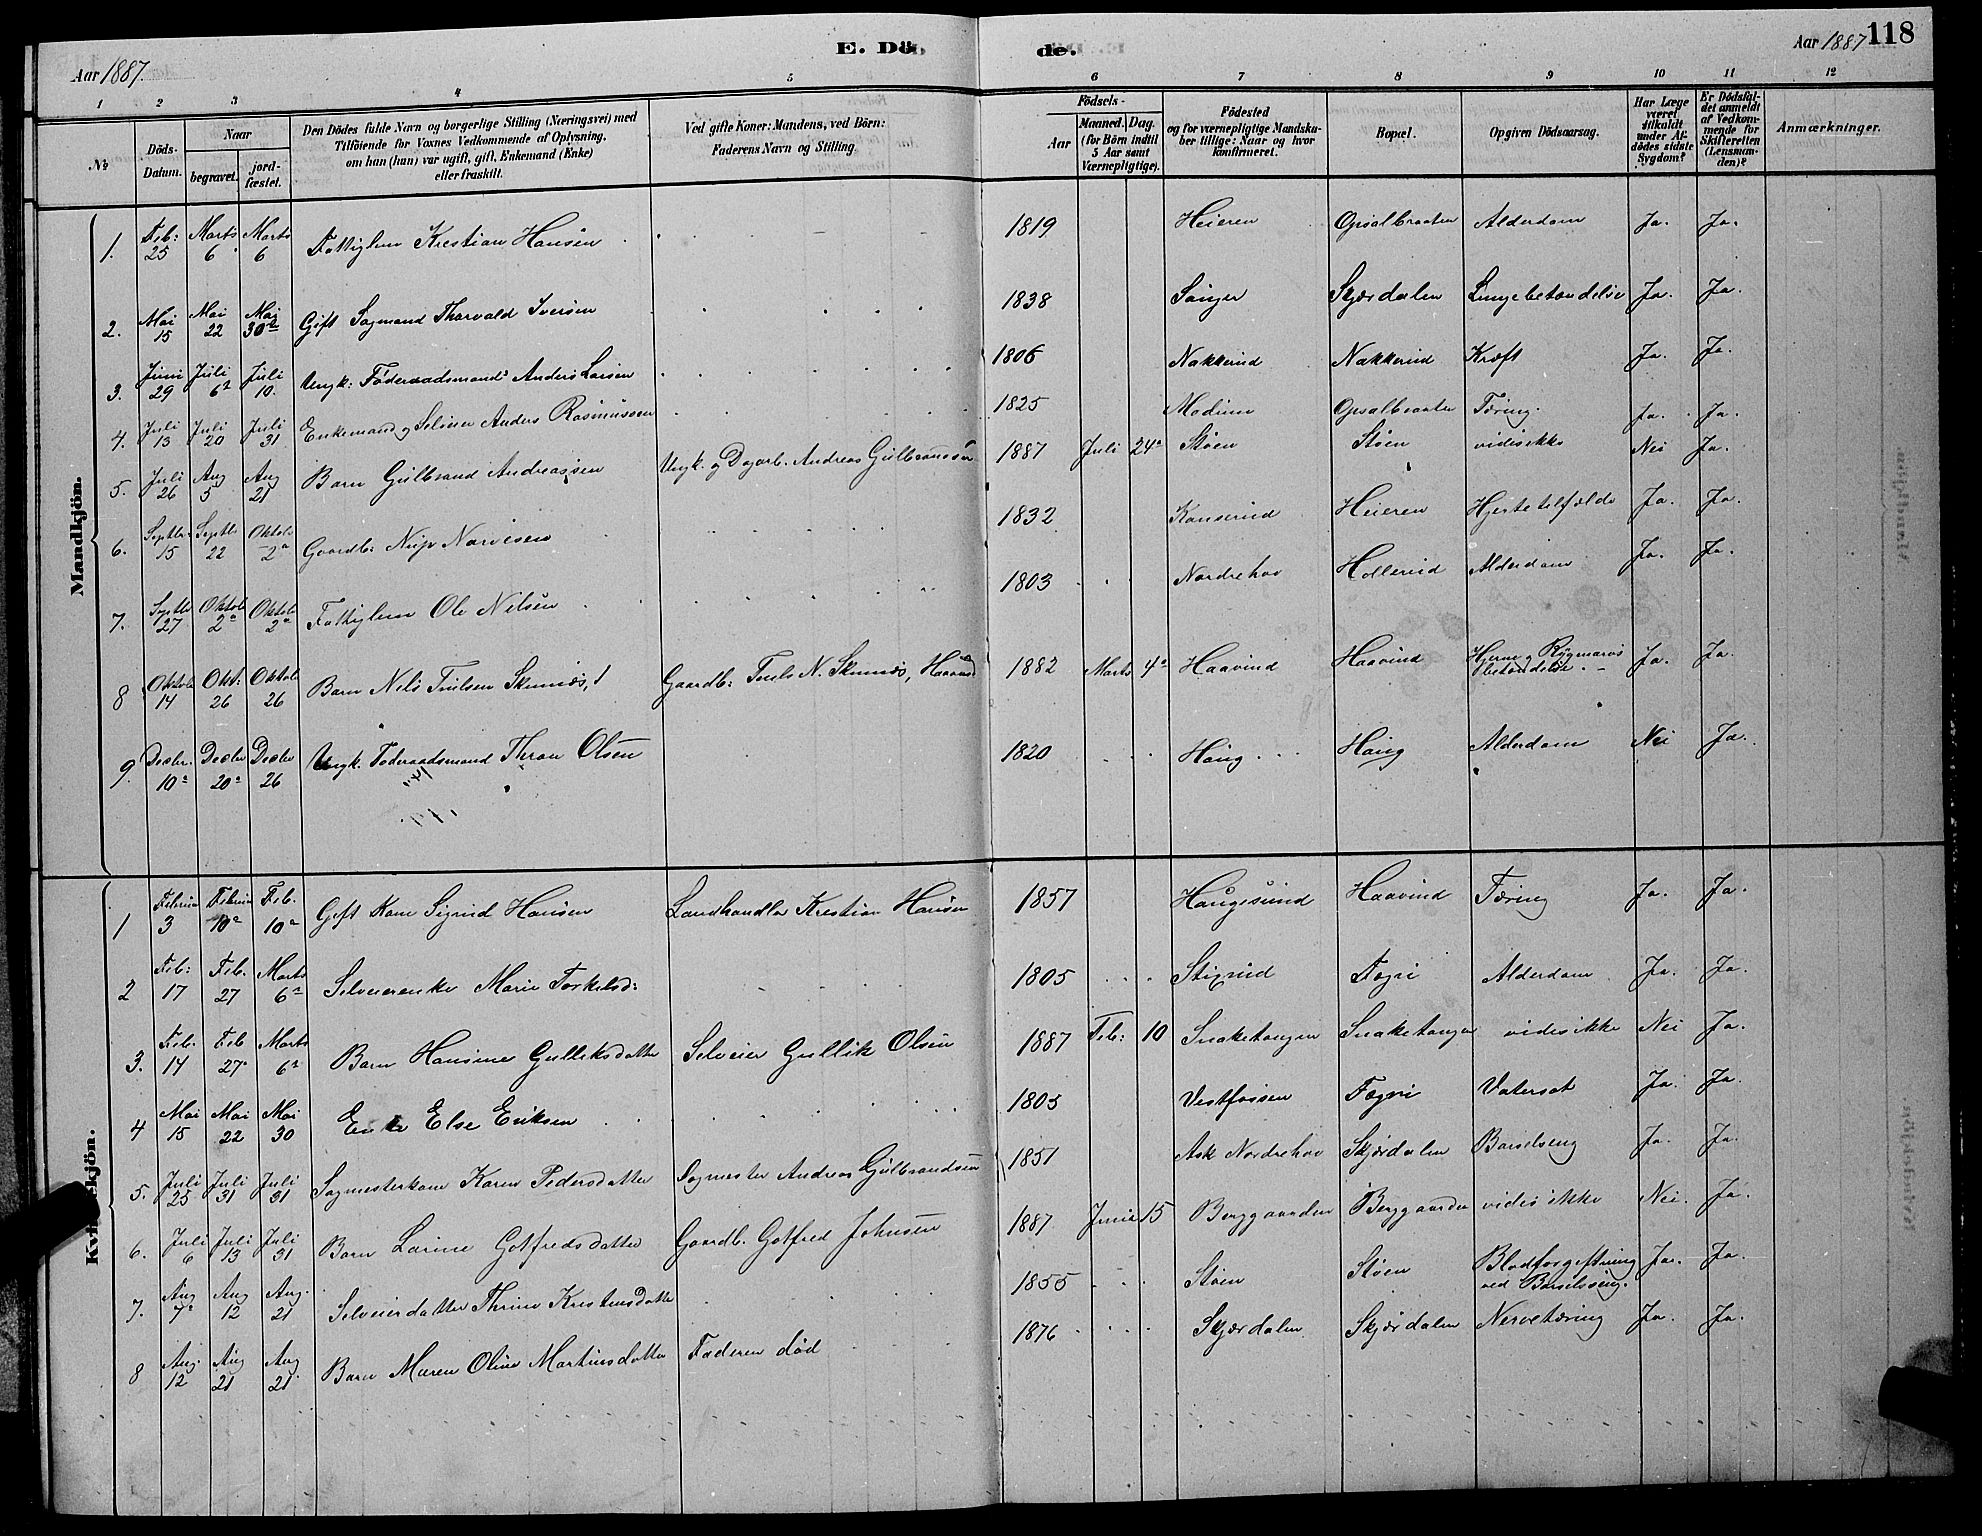 E. Dö de.
Aar 1887.
Aar 1887 118
1 2 3 4 5 6 7 8 9 10 11 12
№
Döds-Datum.
Naar
begravet.
jordfæstet.
Den Dödes fulde Navn og borgerlige Stilling (Næringsvei) med
Tilföiende for Voxnes Vedkommende af Oplysning,
om han (hun) var ugift, gift, Enkemand (Enke)
eller fraskilt.
Ved gifte Koner: Mandens, ved Börn:
Faderens Navn og Stilling.
Födsels-
Aar
Maaned. Dag.
(for Börn indtil
5 Aar samt
Værnepligtige).
Födested
og for værnepligtige Mandskaber tillige: Naar og hvor
konfirmeret.
Bopæl.
Opgiven Dödsaarsag.
Har Læge
været
tilkaldt
under Afdödes sidste
Sygdom?
Er Dödsfaldet anmeldt
af Vedkommende for
Skifteretten
(Lensmanden)?
Anmærkninger.
Mandkjön.
1. Feb: 25 Marts 6 Marts 6 Fattiglem Krestian Hansen 1819 Heieren Opsalbraaten Alderdom Ja. Ja.
2. Mai 15 Mai 22 Mai 30 Gift Sagmand Thorvald Iversen 1838 Skjærdalen Lungebetændelse Ja. Ja.
3. Juni 29 Juli 6 Juli 10. Ungk: Föderaadsmand Anders Larsen 1806 Nakkerud Nakkerud Kræft Ja. Ja.
4. Juli 13 Juli 20 Juli 31 Enkemand og Selveier Anders Rasmussen 1825 Modum Opsalbraaten Tæring. Ja. Ja.
5. Juli 26 Aug 5 Aug 21 Barn Gulbrand Andreassen Ungk. og Dagarb. Andreas Gulbrandsen 1887 Juli 24 Støen Støen vides ikke Nei Ja.
6. Septbr 15 Septbr 22 Oktob 2 Gaardb: Narvesen 1832 Heieren Hjertetilfælde Ja. Ja.
7. Septbr 27 Oktob 2 Oktob 2 Fattiglem Ole Nilsen 1803 Nordrehov Hollerud Alderdom Ja. Ja.
8 Oktob 14 Okt: 26 Oktob 26 Barn Nils Truls N. 1882 Marts 4 Haavind Haavind Hjerne og Rygmarvsbetændelse Ja. Ja.
9. Decbr. 10 Decbr 20 Decbr 26 Ungk. Föderaadsmand Thron Olsen 1820 Haug Haug Alderdom Nei Ja.
Kvindekjön.
1 Februar 3 Februar 10 Feb. 10 Gift Kone Sigrid Hansen Landhandler Krestian Hansen 1857 Haugesund Haavind Tæring Ja. Ja.
2 Feb: 17 Feb. 27 Marts 6 Selveierenke Marie Torkelsd: 1805 Fegri Alderdom Ja. Ja.
3. Feb. 14 Feb 27 Marts 6 Barn Hansine Gulliksdatter Selveier Gullik Olsen 1887 Feb: 10 Snaketangen Snaketangen vides ikke Nei Ja.
4 Mai 15 Mai 22 Mai 30 Enke Else Eriksen 1805 Vestfossen Fegri Vatersot Ja. Ja.
5. Juli 25 Juli 31 Juli 31 Sagmesterkone Karen Pedersdatter Sagmester Andreas Gulbrandsen 1851 Ask Nordrehov Skjærdalen Barselseng Ja. Ja.
6. Juli 6 Juli 13 Juli 31 Barn Larine Gotfredsdatter Gaardb. Gotfred Johnsen 1887 Juni 15 Berggaarden Berggaarden vides ikke Nei. Ja.
7. Aug 7 Aug 12 Aug. 21 Selveierdatter Thrine Krestensdatter 1855 Støen Støen Blodforgiftning ved Barselseng. Ja. Ja.
8 Aug. 12 Aug 21 Aug 21 Barn Maren Oline Martinsdatter Faderen død 1876 Skjærdalen Skjærdalen Nervetæring Ja. Ja.